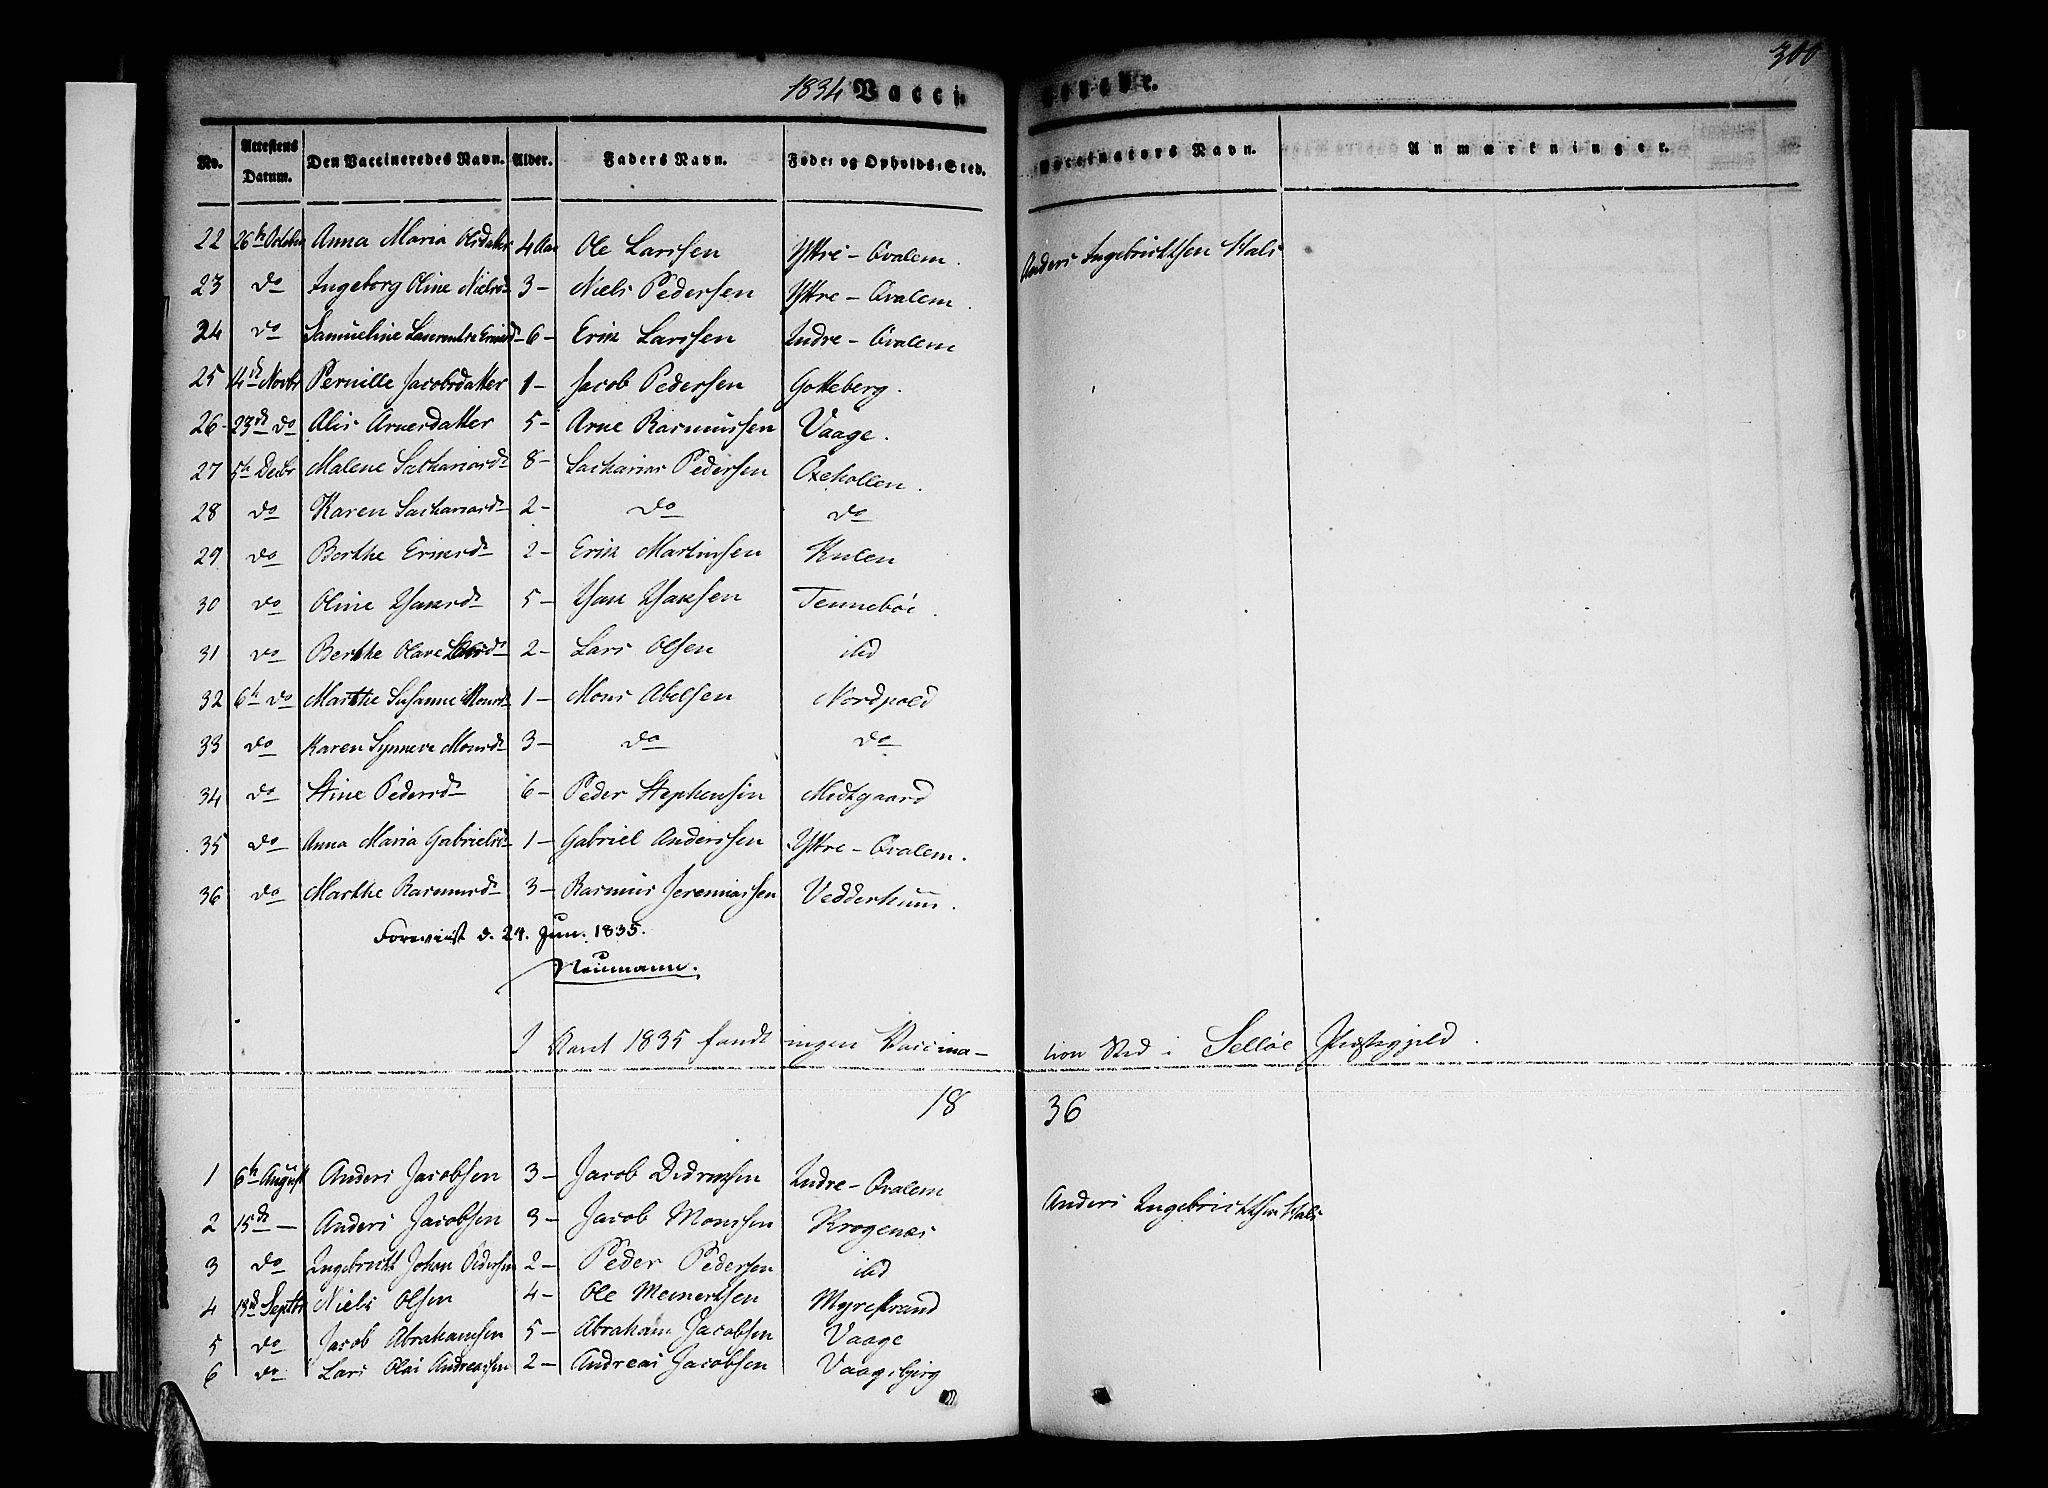 1834 Vacci-
nerede.
300
No. Attestens Datum. Den Vaccineredes Navn. Alder. Faders Navn. Føde- og Opholds-Sted. Vaccinateurs Navn. Anmærkninger.
22 26th October Anna Maria Olsdatter 4 Aar Ole Larssen Yttre-Qvalem. Anders Ingebrichtsen Hals
23 do Ingeborg Oline Nielsd 3- Niels Pedersen Yttre-Qvalem.
24 do Samueline Laurentze Erichsd 6- Erik Larssen Indre-Qvalem
25 14de Novbr Pernille Jacobsdatter 1- Jacob Pedersen Gotteberg.
26 23de do Alis Arnesdatter 5- Arne Rasmussen Vaage.
27 5th Decbr Malene Sachariasd 8- Sacharias Pedersen Oxekollen.
28 do Karen Sachariasd 2- do do
29 do Berthe Eriksd 2- Erik Martinssen Kulen
30 do Oline Hansd 5- Hans Hanssen Tenneböe.
31 do Berthe Olave Larsd 2- Lars Olsen ibd
32 6th do Marthe Susanne Monsd 1- Mons Abelsen Nordpold
33 do Karen Synneve Monsd 3- do do
34 do Stine Pedersd 6- Peder Stephensen Midtgaard
35 do Anna Maria Gabrielsd 1- Gabriel Anderssen Yttre-Qvalem.
36 do Marthe Rasmusd 3- Rasmus Jeremiassen Vedderhuus.
Foreviist d. 24. Jun. 1835.
Neumann.
I Aaret 1835 fandt ingen Vaccina-
tion Sted i Sellöe Præstegjeld.
18 36
1 6th August Anders Jacobsen 3- Jacob Didrikssen Indre-Qvalem Anders Ingebrichtsen Hals
2 15de - Anders Jacobsen 3- Jacob Monssen Krogenæs
3 do Ingebricht Johan Pedersen 2- Peder Pedersen ibd
4 13d Septbr Niels Olsen 4- Ole Meinertsen Myrestrand
5 do Jacob Abrahamsen 5- Abraham Jacobsen Vaage
6 do Lars Olai Andreassen 2- Andreas Jacobsen Vaagsbjerg